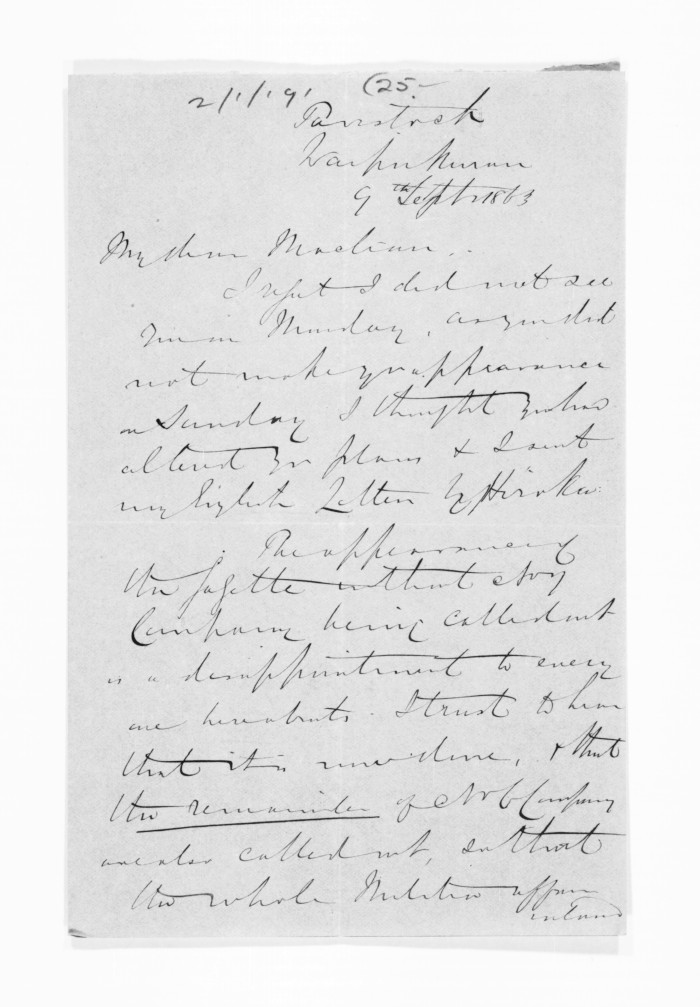 2/1/191 (25.-
Tavistock
Waipukurau
9th Sept 1863
My dear Maclean..
I regret I did not see
you on Monday, as you did
not make yr appearance
on Sunday I thought you had
altered yr plans & I sent
my English Letters by Hiraka
The appearance of
the Gazette without No 4
Company being called out
is a disappointment to every
one hereabouts. I trust to hear
that it is now done, & that
the remainder of No 6 Company
are also called out, so that
the whole Militia affair
inland